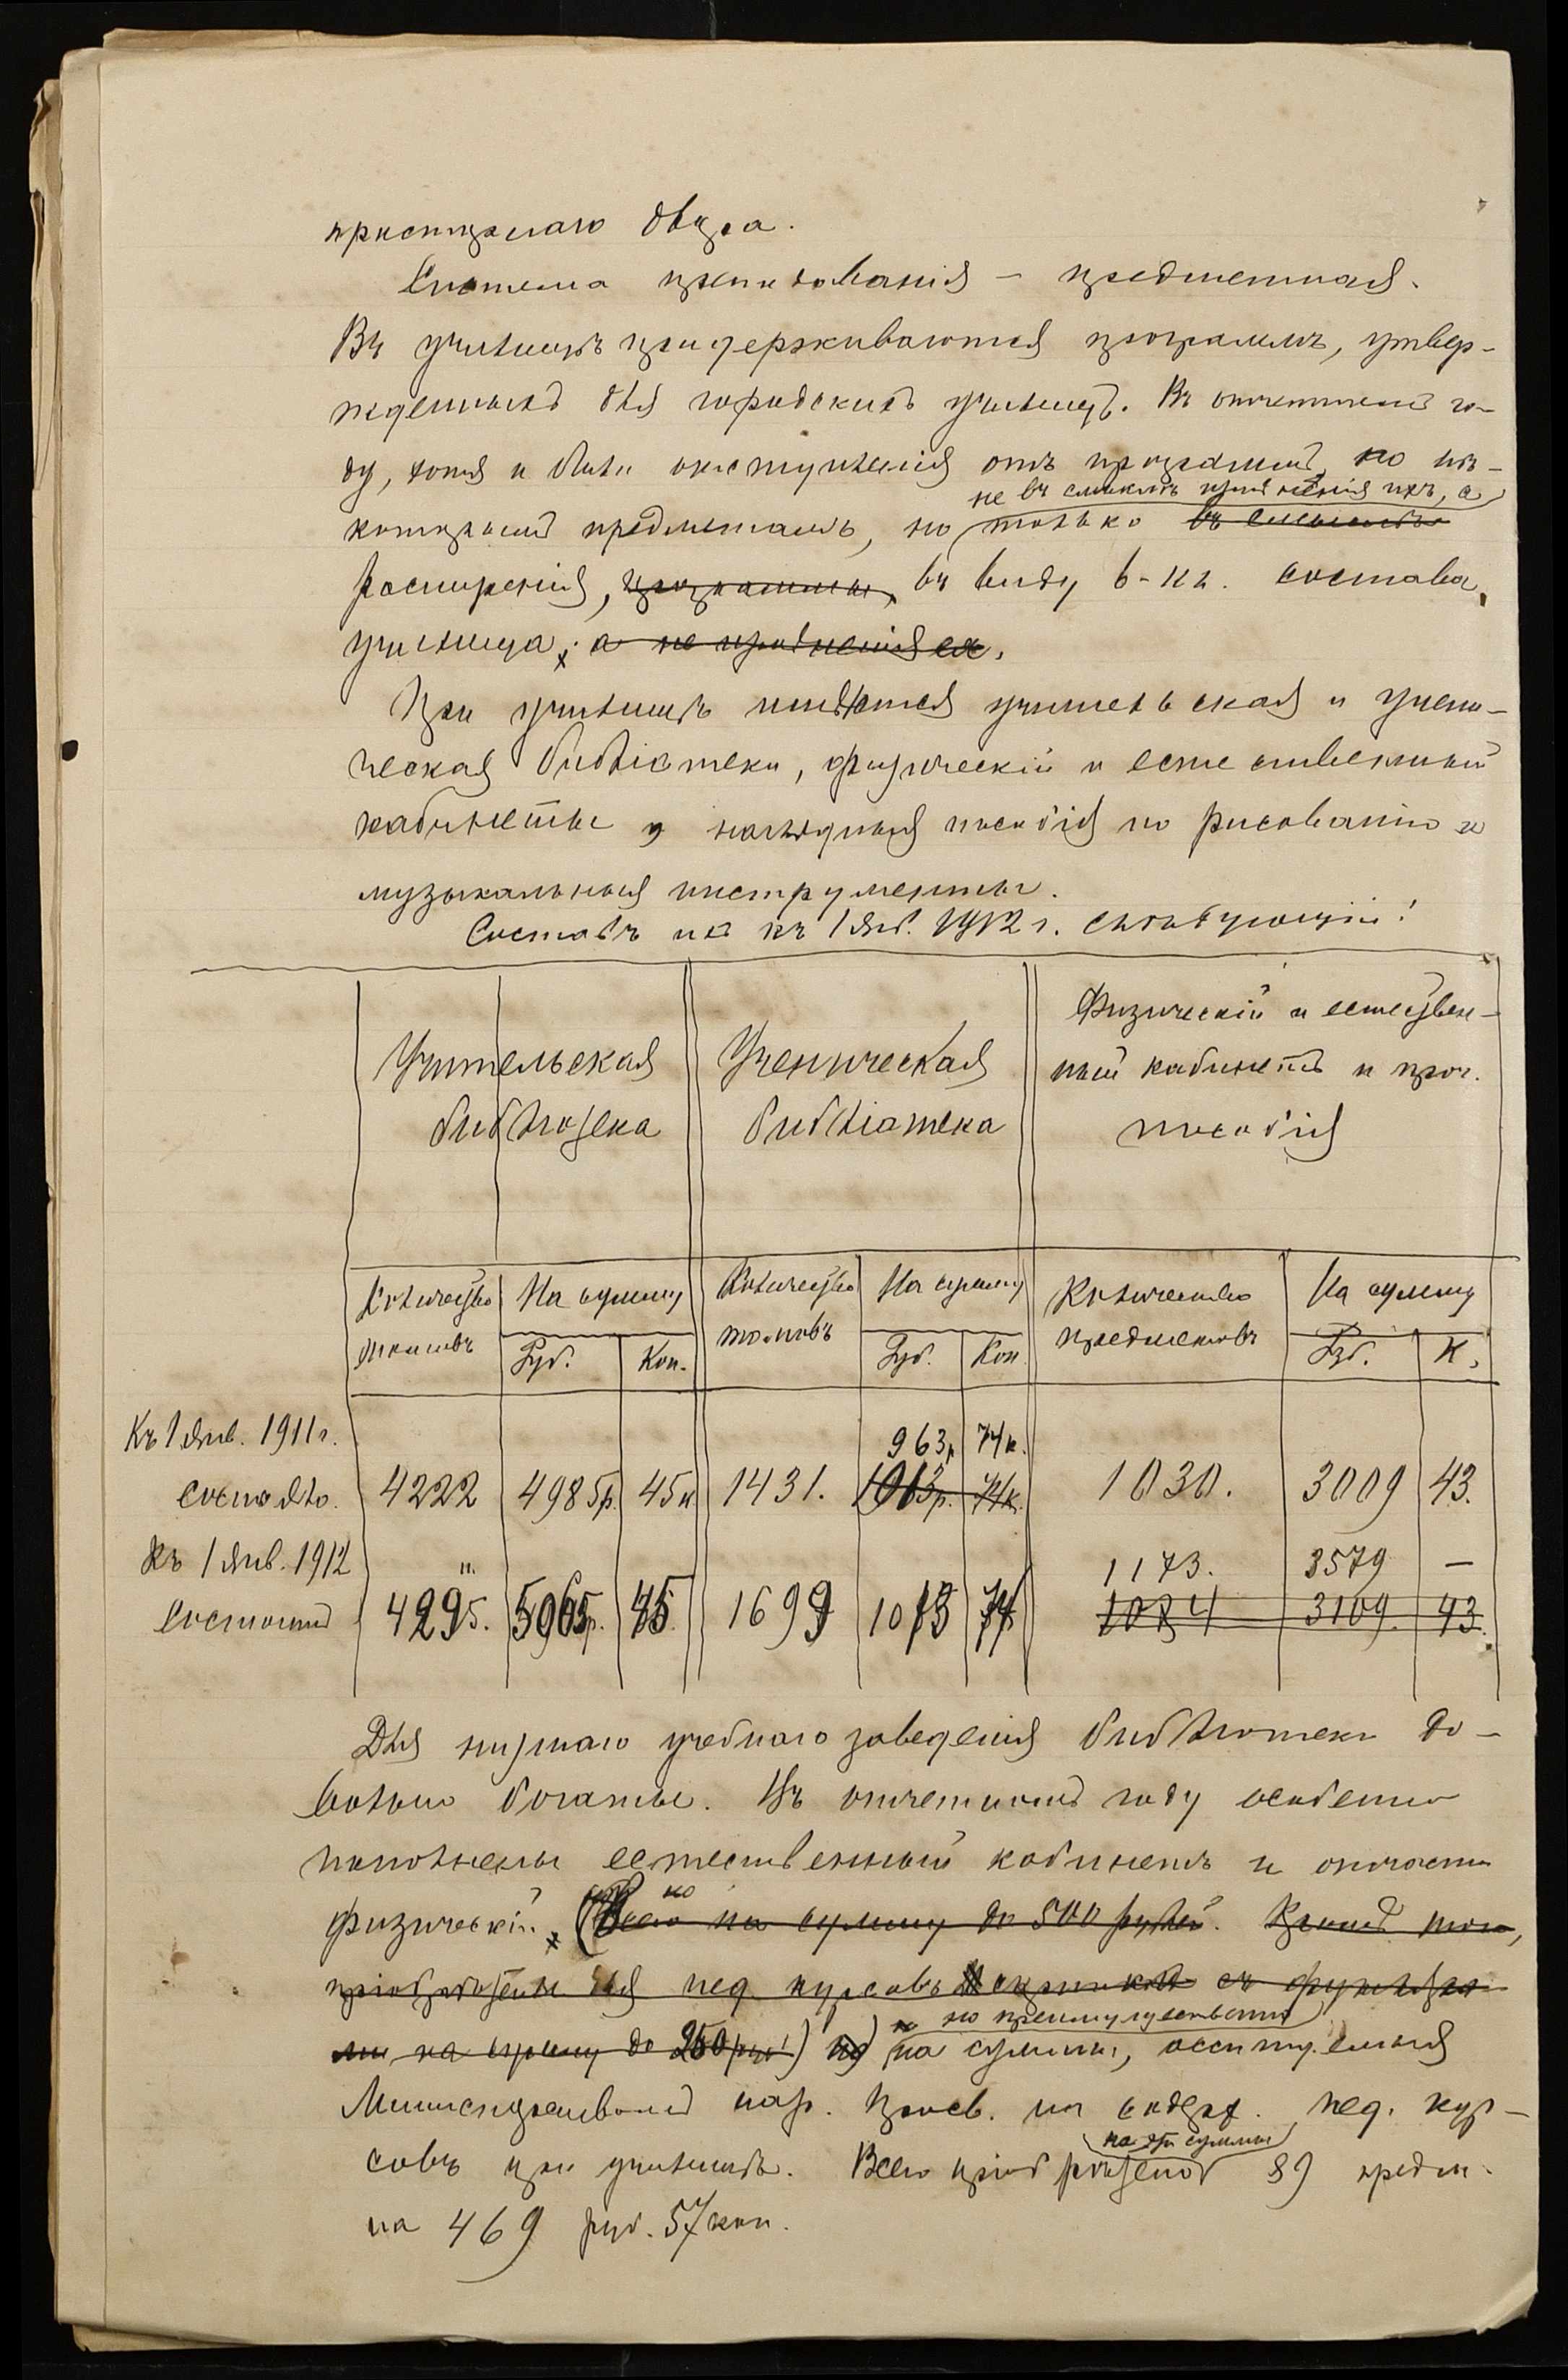 Система преподаванія – предметная.
Въ училищѣ придерживаются программъ, утвер-
жденныхъ для городскихъ училищъ. Въ отчетномъ го-
ду, хотя и были отступленія отъ программъ по нѣ-
не въ смыслѣ измѣненія ихъ, а
которымъ предметамъ, но только въ смыслѣ
расширенія, программы, въ виду 6-кл. состава
училища, а не измѣненія ея.
При училищѣ имѣются учительская и учени-
ческая библіотеки, физическій и естественный
кабинеты и наглядныя пособія по рисованію и
музыкальные инструменты.
Составъ ихъ къ 1 Янв. 1912 г. слѣдующій:
Учительская библіотека
Ученическая библіотека
Физическій и естествен-
ный кабинетъ и проч.
пособія
Количество томовъ На сумму Руб. Коп.
Количество томовъ На сумму Руб. Коп.
Количество предметовъ На сумму Руб. К.
Къ 1 Янв. 1911 г. 963 р. 74 к.
состояло. 4222 4985 р. 45 к. 1431. 1013 р. 74 к. 1030. 3009 43.
Къ 1 Янв. 1912 1173. 3579 —
состоитъ 4295. 5065 р. 45 1699 1073 74 1084 3109. 43.
Для низшаго учебнаго заведенія библіотеки до-
вольно богаты. Въ отчетномъ году особенно
пополнены естественный кабинетъ и отчасти
физическій. (Всего на сумму до 500 рублей. Кромѣ того,
пріобрѣтены для пед. курсовъ скрипки съ футляра-
но преимущественно
ми на сумму до 250 руб.) на суммы, ассигнуемыя
Министерствомъ нар. просв. на содерж. пед. кур-
на эти суммы
совъ при училищѣ. Всего пріобрѣтено 89 предм.
на 469 руб. 57 коп.